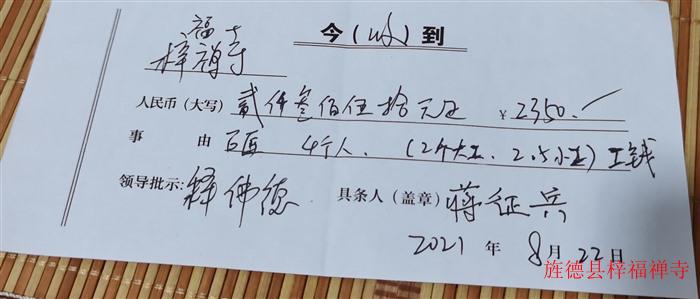 今（收）到
梓福禅寺
人民币（大写）贰仟叁佰伍拾元正 ￥2350.
事由 4个人.（2个大工. 2.5小工）工钱
领导批示：释伟德 具条人（盖章）蒋征兵
2021年8月22日
旌德县梓福禅寺